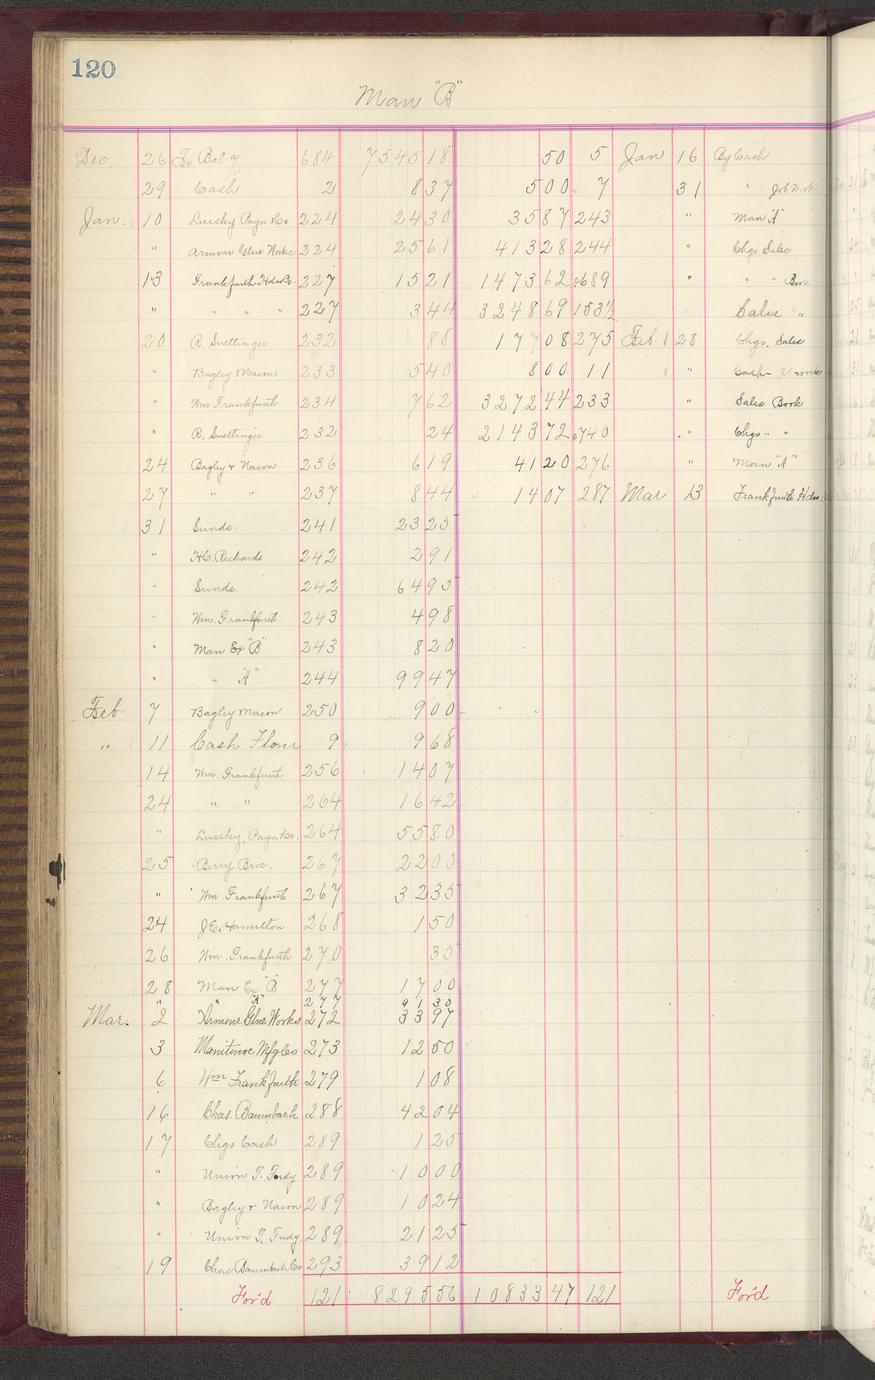 120
Man "B"
Dec. 26 To Bal of 684 7545 18 50 5 Jan 16 By Cash
29 Cash 2 8 37 5 00 7 31 " Job Work
Jan. 10 Lussky Payn & Co 224 24 30 35 87 243 " Man "A"
" Armour Glue Works 224 25 61 413 28 244 " Chgo Sales
13 Frankfurth Hdw Co 227 15 21 1473 62 689 " " " Book
" " " " 227 3 44 3248 69 153½ Sales "
20 R. Suettinger 232 88 177 08 275 Feb 28 Chgo. Sales
" Bagley Nason 233 5 40 8 00 11 " Cash
" Wm Frankfurth 234 7 62 3272 44 233 " Sales Book
" R. Suettinger 232 24 2143 72 740 " Chgo " "
24 Bagley & Nason 236 6 19 41 20 276 " Man "A"
27 " " 237 8 44 14 07 287 Mar 13 Frankfurth Hdw
31 Sunds. 241 23 25
" H.C. Richards 242 2 91
" Sunds. 242 64 95
" Wm. Frankfurth 243 4 98
" Man Ex "B" 243 8 20
" " "A" 244 99 47
Feb. 7 Bagley Nason 250 9 00
" 11 Cash 9 9 68
14 Wm. Frankfurth 256 14 07
24 " " 264 16 42
" Lussky, Payn & Co. 264 55 80
25 Berry Bros. 267 22 00
" Wm. Frankfurth 267 32 35
24 J.E. Hamilton 268 1 50
26 Wm. Frankfurth 270 35
28 Man Ex "B" 277 17 00
" " "A" 277 91 30
Mar. 2 Armour Glue Works 272 33 97
3 Manitowoc Mfg Co 273 12 50
6 Wm Frankfurth 279 1 08
16 Chas. Baumbach 288 42 04
17 Chgo Cash 289 1 25
" Union T. Fndy 289 10 00
" Bagley & Nason 289 10 24
" Union T. Fndy 289 21 25
19 Chas Baumbach Co 293 39 12
For'd 121 8295 56 10833 47 121 For'd